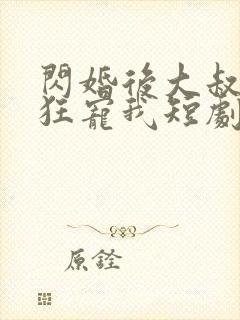 閃婚後大叔
狂寵我短劇
原銓